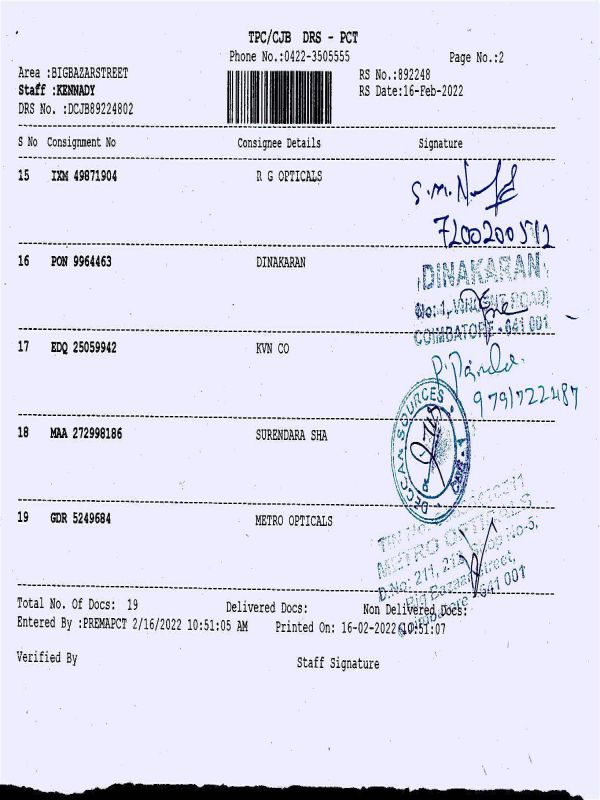 TPC/CJB DRS - PCT
Phone No.:0422-3505555
Page No.:2
Area :BIGBAZARSTREET
RS No.:892248
Staff :KENNADY
RS Date:16-Feb-2022
DRS No. :DCJB89224802
S No Consignment No Consignee Details Signature
15 IXM 49871904 R G OPTICALS
S.M.
7200200512
16 PON 9964463 DINAKARAN
DINAKARAN
No: 1, ROAD
COIMBATORE - 641 001
17 EDQ 25059942 KVN CO
9791722487
18 MAA 272998186 SURENDARA SHA
DECCAN SOURCES
19 GDR 5249684 METRO OPTICALS
TIN No.
METRO OPTICALS
D.No: 211, 212, Shop No-5,
Big Bazaar Street,
Coimbatore - 641 001
Total No. Of Docs: 19 Delivered Docs: Non Delivered Docs:
Entered By :PREMAPCT 2/16/2022 10:51:05 AM Printed On: 16-02-2022 10:51:07
Verified By
Staff Signature